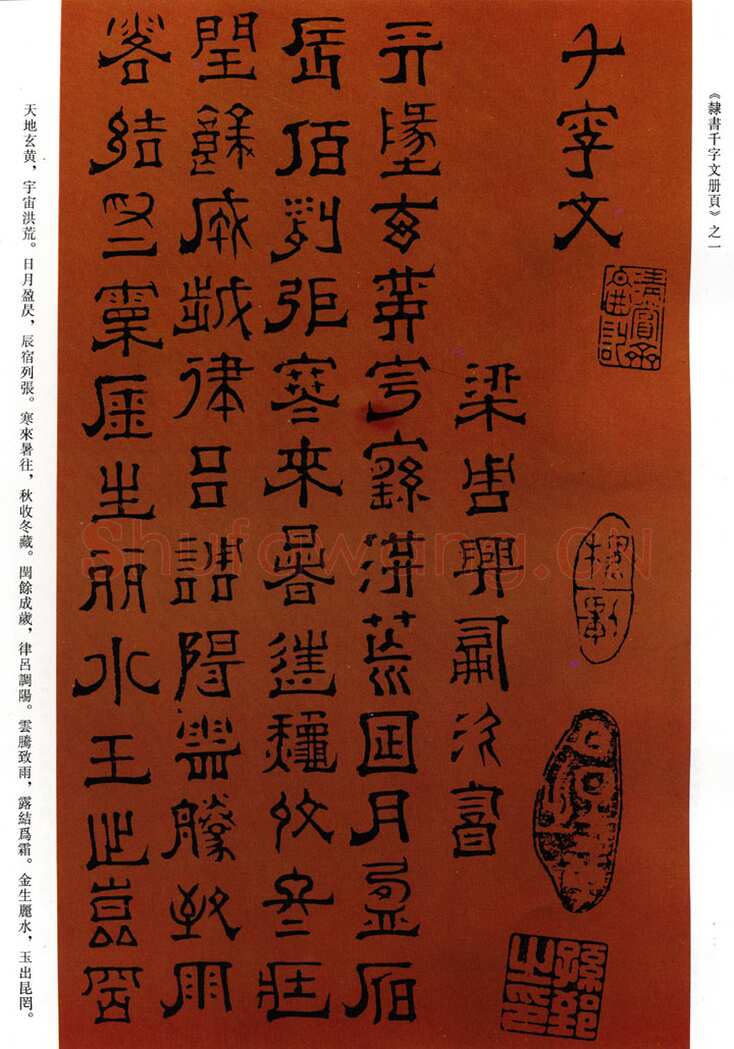 《隸書千字文册頁》之一
千字文
梁周興嗣次
天地玄黃宇宙洪荒日月盈昃
辰宿列張寒來暑往秋收冬藏
閏餘成歲律呂調陽雲騰致雨
露結爲霜金生麗水玉出崑岡
天地玄黄，宇宙洪荒。日月盈昃，辰宿列張。寒來暑往，秋收冬藏。閏餘成歲，律呂調陽。雲騰致雨，露結爲霜。金生麗水，玉出昆罔。
Shufawang.CN